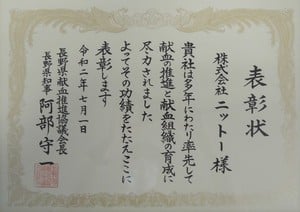 表彰状
株式会社ニットー様
貴社は多年にわたり率先して
献血の推進と献血組織の育成に
尽力されました
よってその功績をたたえここに
表彰します
令和二年七月一日
長野県献血推進協議会長
長野県知事 阿部守一